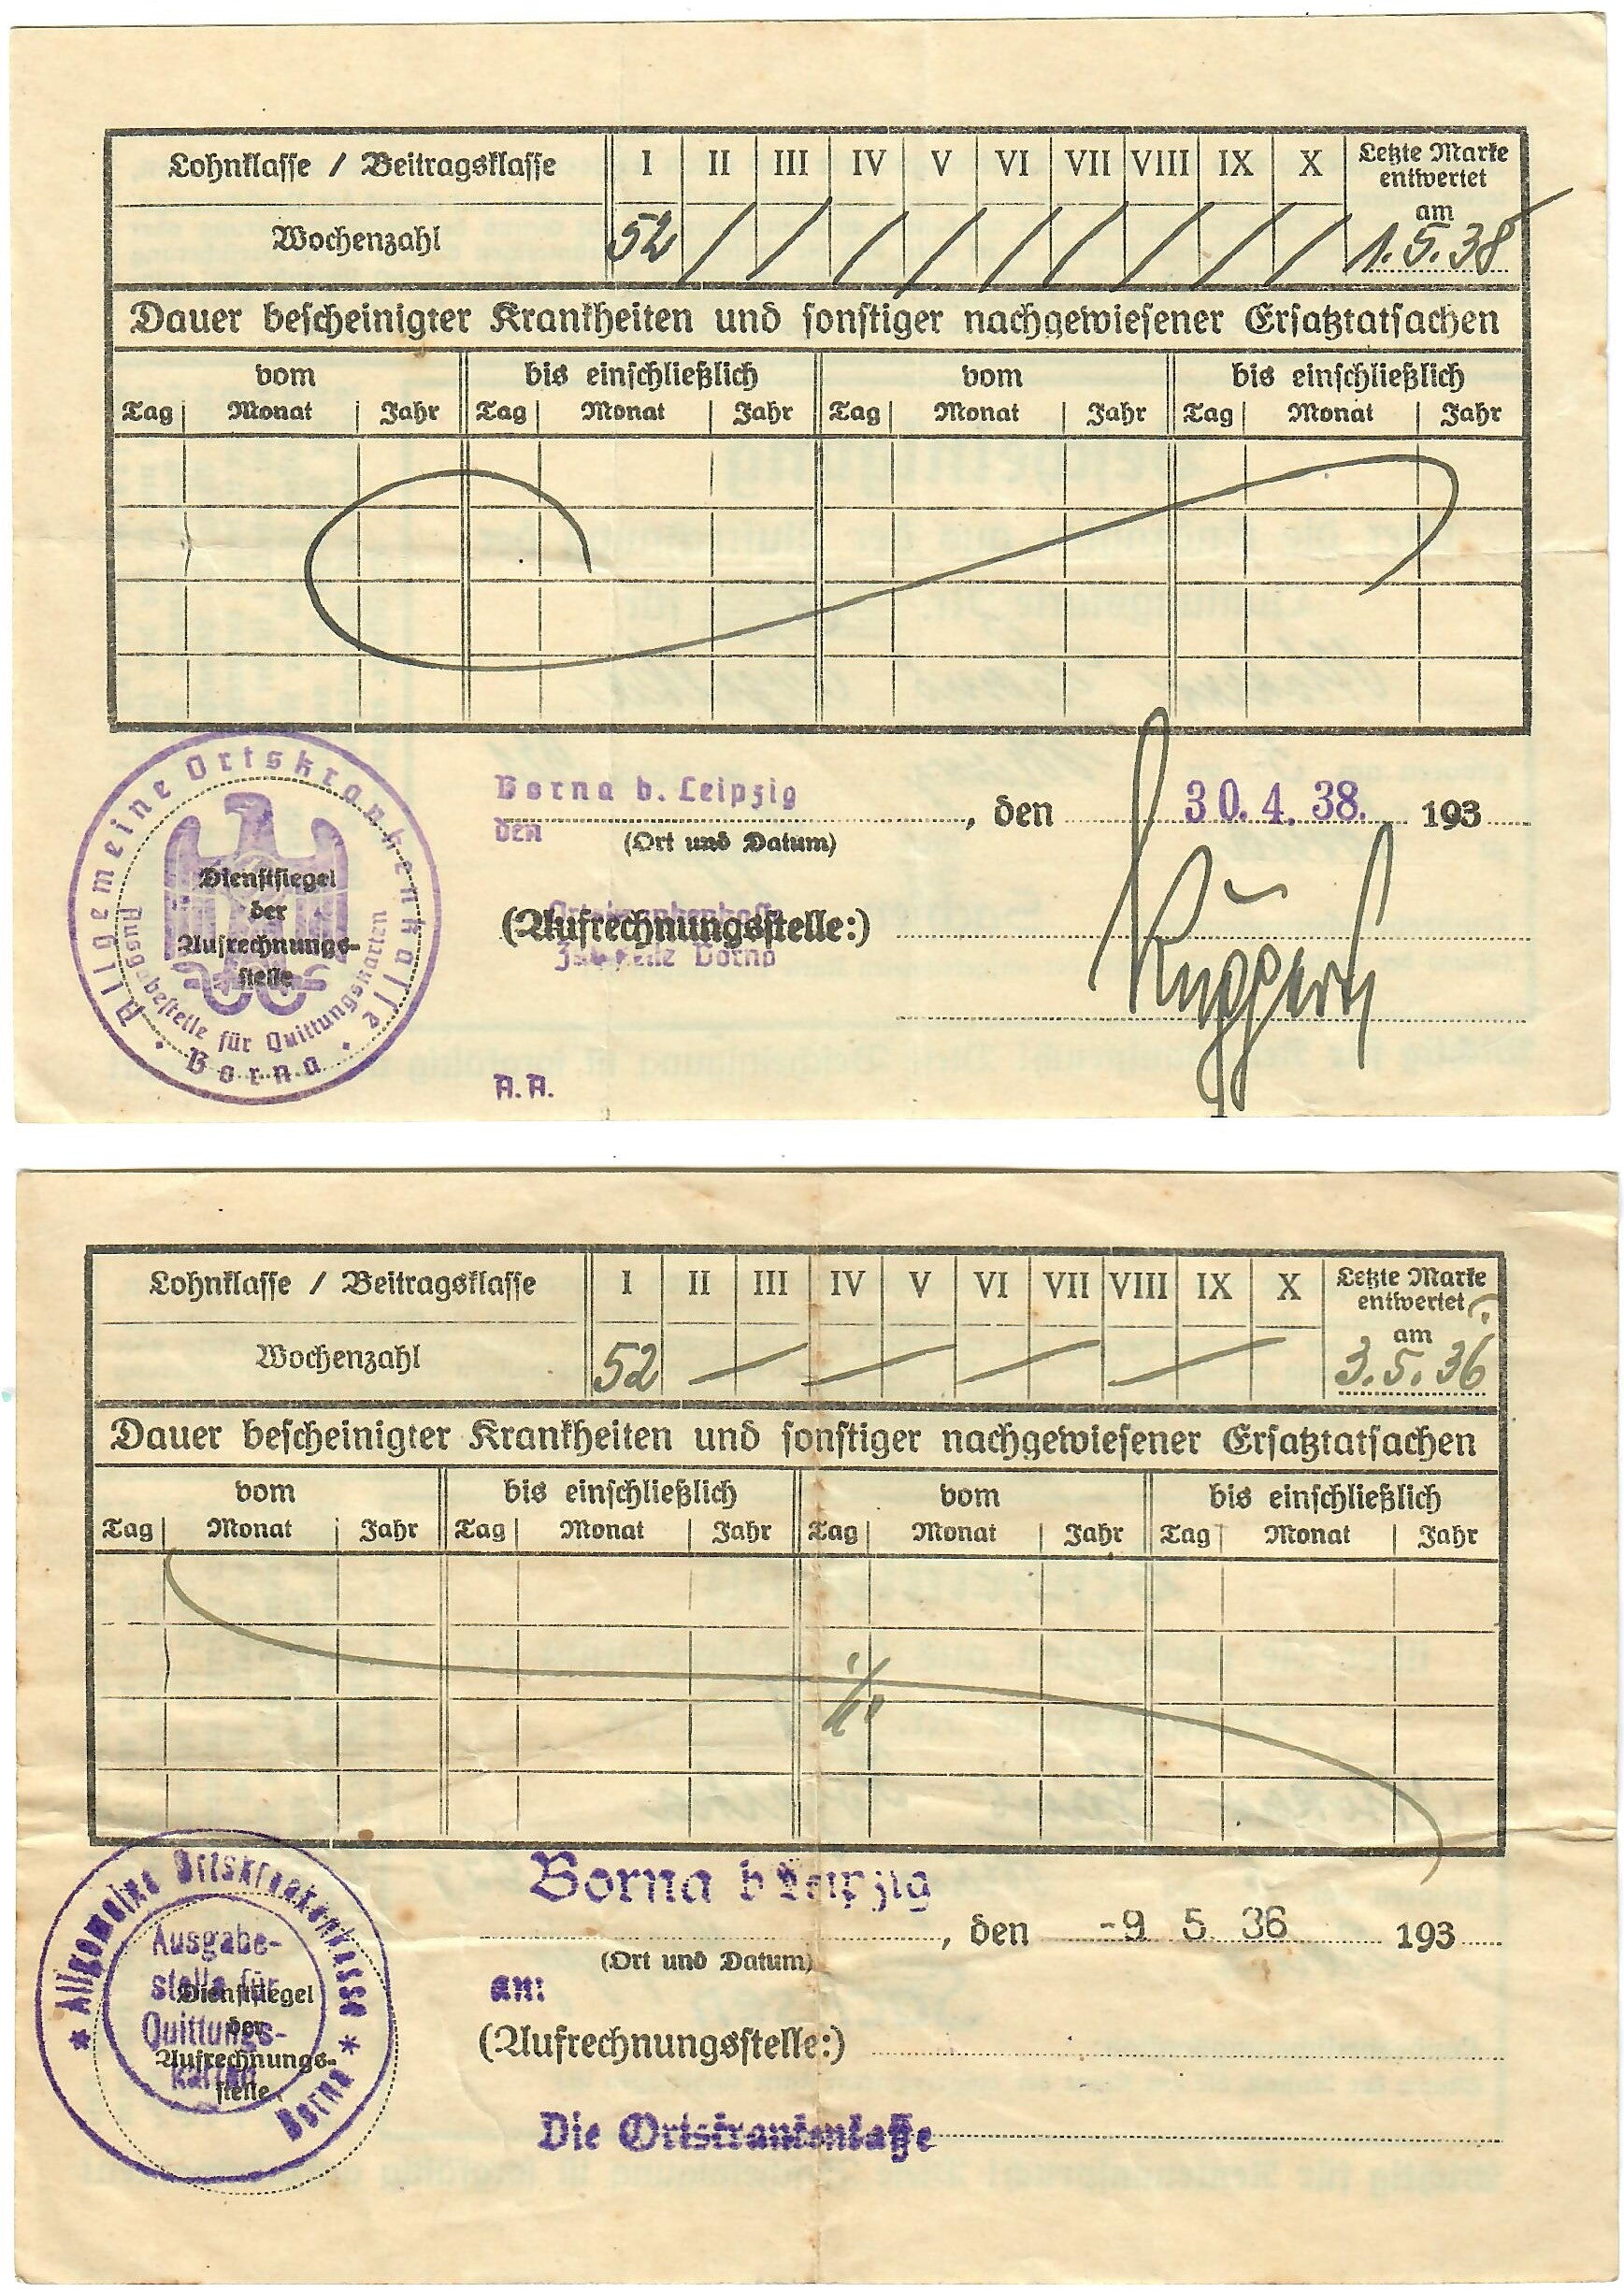 Lohnklasse / Beitragsklasse I II III IV V VI VII VIII IX X Letzte Marke
entwertet
am
Wochenzahl 52 / / / / / / / / / 1.5.38
Dauer bescheinigter Krankheiten und sonstiger nachgewiesener Ersatztatsachen
vom bis einschließlich vom bis einschließlich
Tag Monat Jahr Tag Monat Jahr Tag Monat Jahr Tag Monat Jahr
Allgemeine Ortskrankenkasse
Ausgabestelle für Quittungskarten
Borna
Dienstsiegel
der
Aufrechnungs-
stelle
Borna b. Leipzig
den
, den 30.4.38. 193
(Ort und Datum)
Ortskrankenkasse
(Aufrechnungsstelle:)
Borna
A.A.
Lohnklasse / Beitragsklasse I II III IV V VI VII VIII IX X Letzte Marke
entwertet
am
Wochenzahl 52 3.5.36
Dauer bescheinigter Krankheiten und sonstiger nachgewiesener Ersatztatsachen
vom bis einschließlich vom bis einschließlich
Tag Monat Jahr Tag Monat Jahr Tag Monat Jahr Tag Monat Jahr
* Allgemeine Ortskrankenkasse * Borna
Ausgabe-
stelle für
Quittungs-
karten
Dienstsiegel
der
Aufrechnungs-
stelle
Borna b Leipzig
, den -9 5 36 193
(Ort und Datum)
an:
(Aufrechnungsstelle:)
Die Ortskrankenkasse